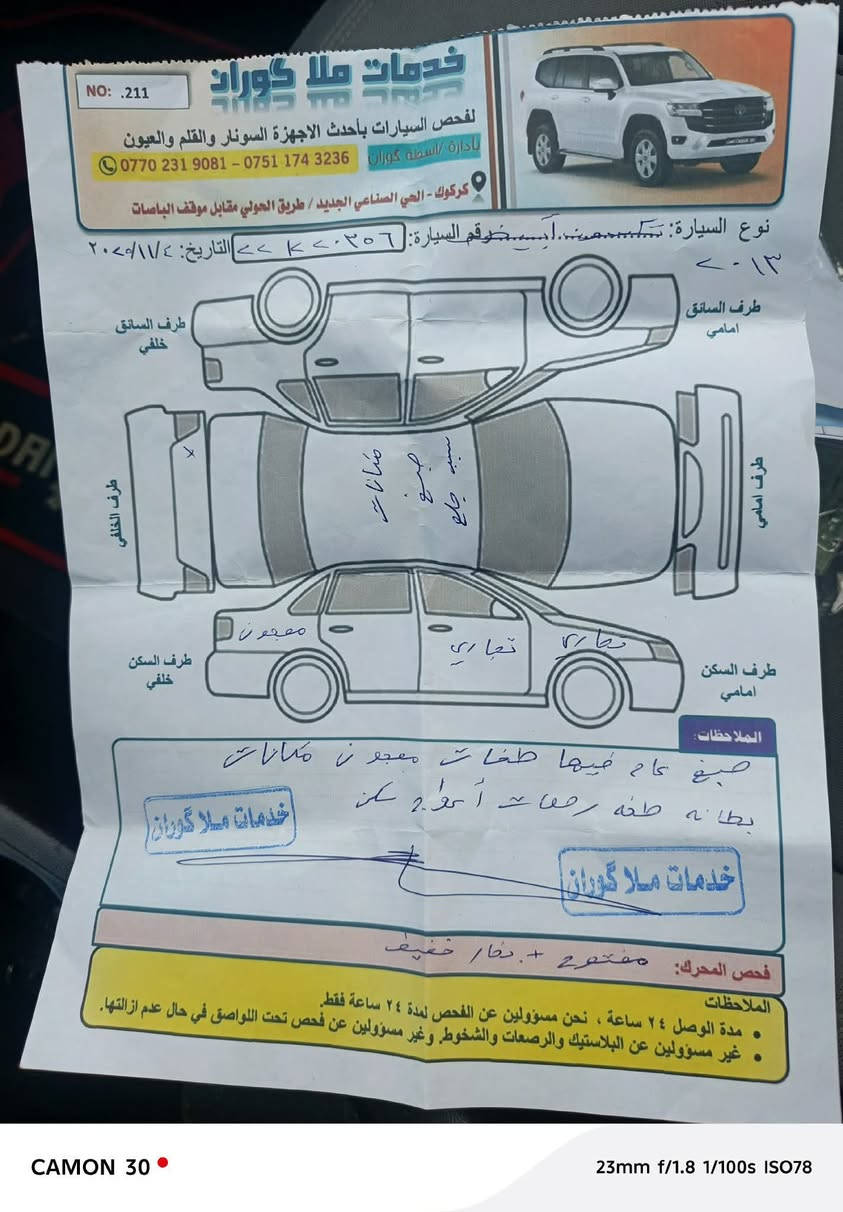 خدمات ملا گوران
NO: .211
لفحص السيارات بأحدث الاجهزة السونار والقلم والعيون
بأدارة /اسطة گوران
0770 231 9081 – 0751 174 3236
كركوك - الحي الصناعي الجديد / طريق الحولي مقابل موقف الباصات
نوع السيارة: أبيض
رقم السيارة: ٢٢ K ٢٠٣٥٦
التاريخ: ٢٠٢٥/١١/٤
٢٠١٣
طرف السائق
امامي
طرف السائق
خلفي
سبيد جلع
صبغ
مكانات
x
طرف امامي
طرف الخلفي
معجون
تجاري
تجاري
طرف السكن
خلفي
طرف السكن
امامي
الملاحظات:
صبغ عام فيها طخات معجون مكانات
بطانه طخه رصعات أعواج سكن
خدمات ملا گوران
خدمات ملا گوران
فحص المحرك: مفتوح + بخار خفيف
الملاحظات
• مدة الوصل ٢٤ ساعة ، نحن مسؤولين عن الفحص لمدة ٢٤ ساعة فقط.
• غير مسؤولين عن البلاستيك والرصعات والشخوط. وغير مسؤولين عن فحص تحت اللواصق في حال عدم ازالتها.
CAMON 30
23mm f/1.8 1/100s ISO78